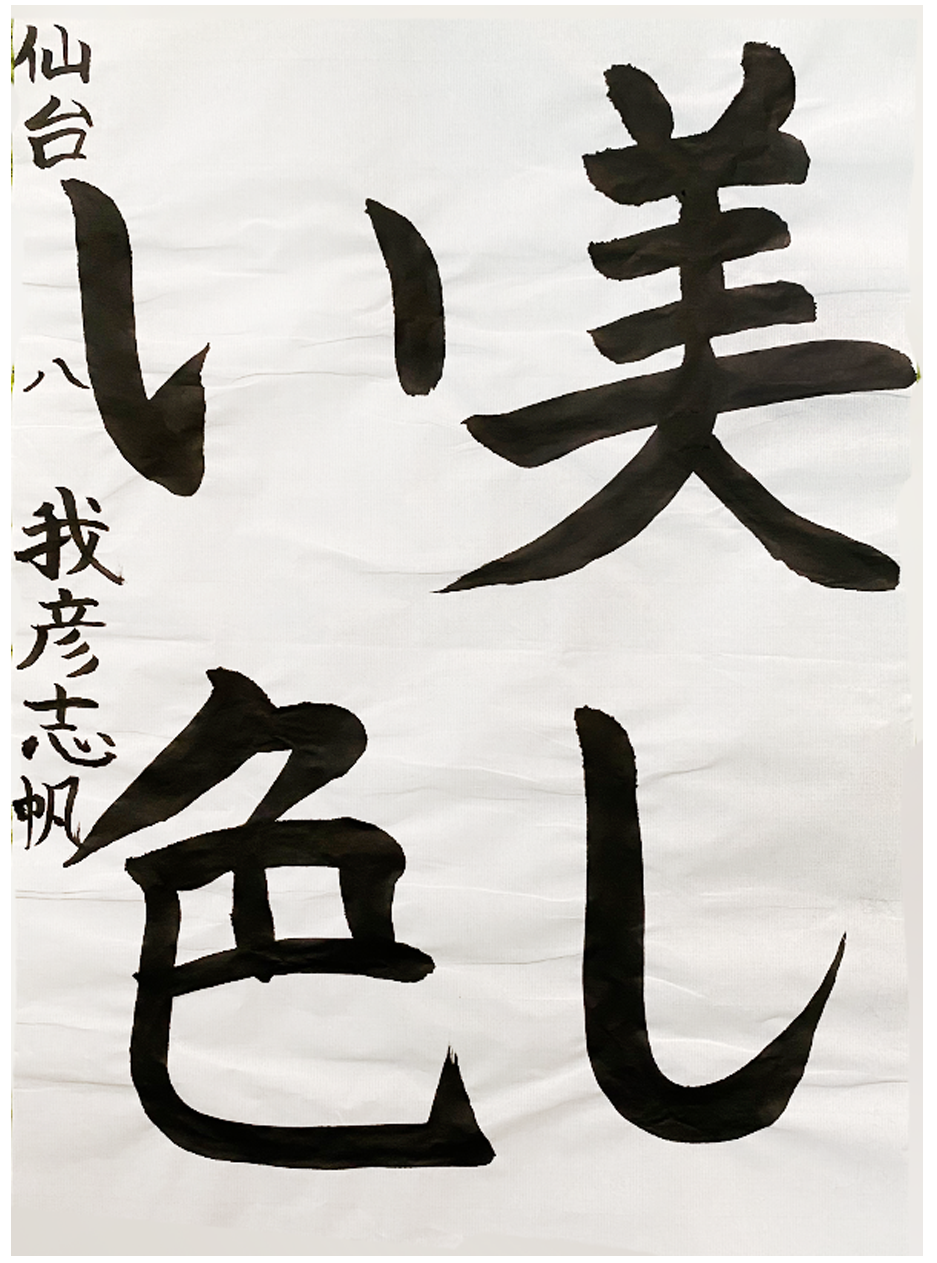 美し
い色
仙台 八 我彦志帆